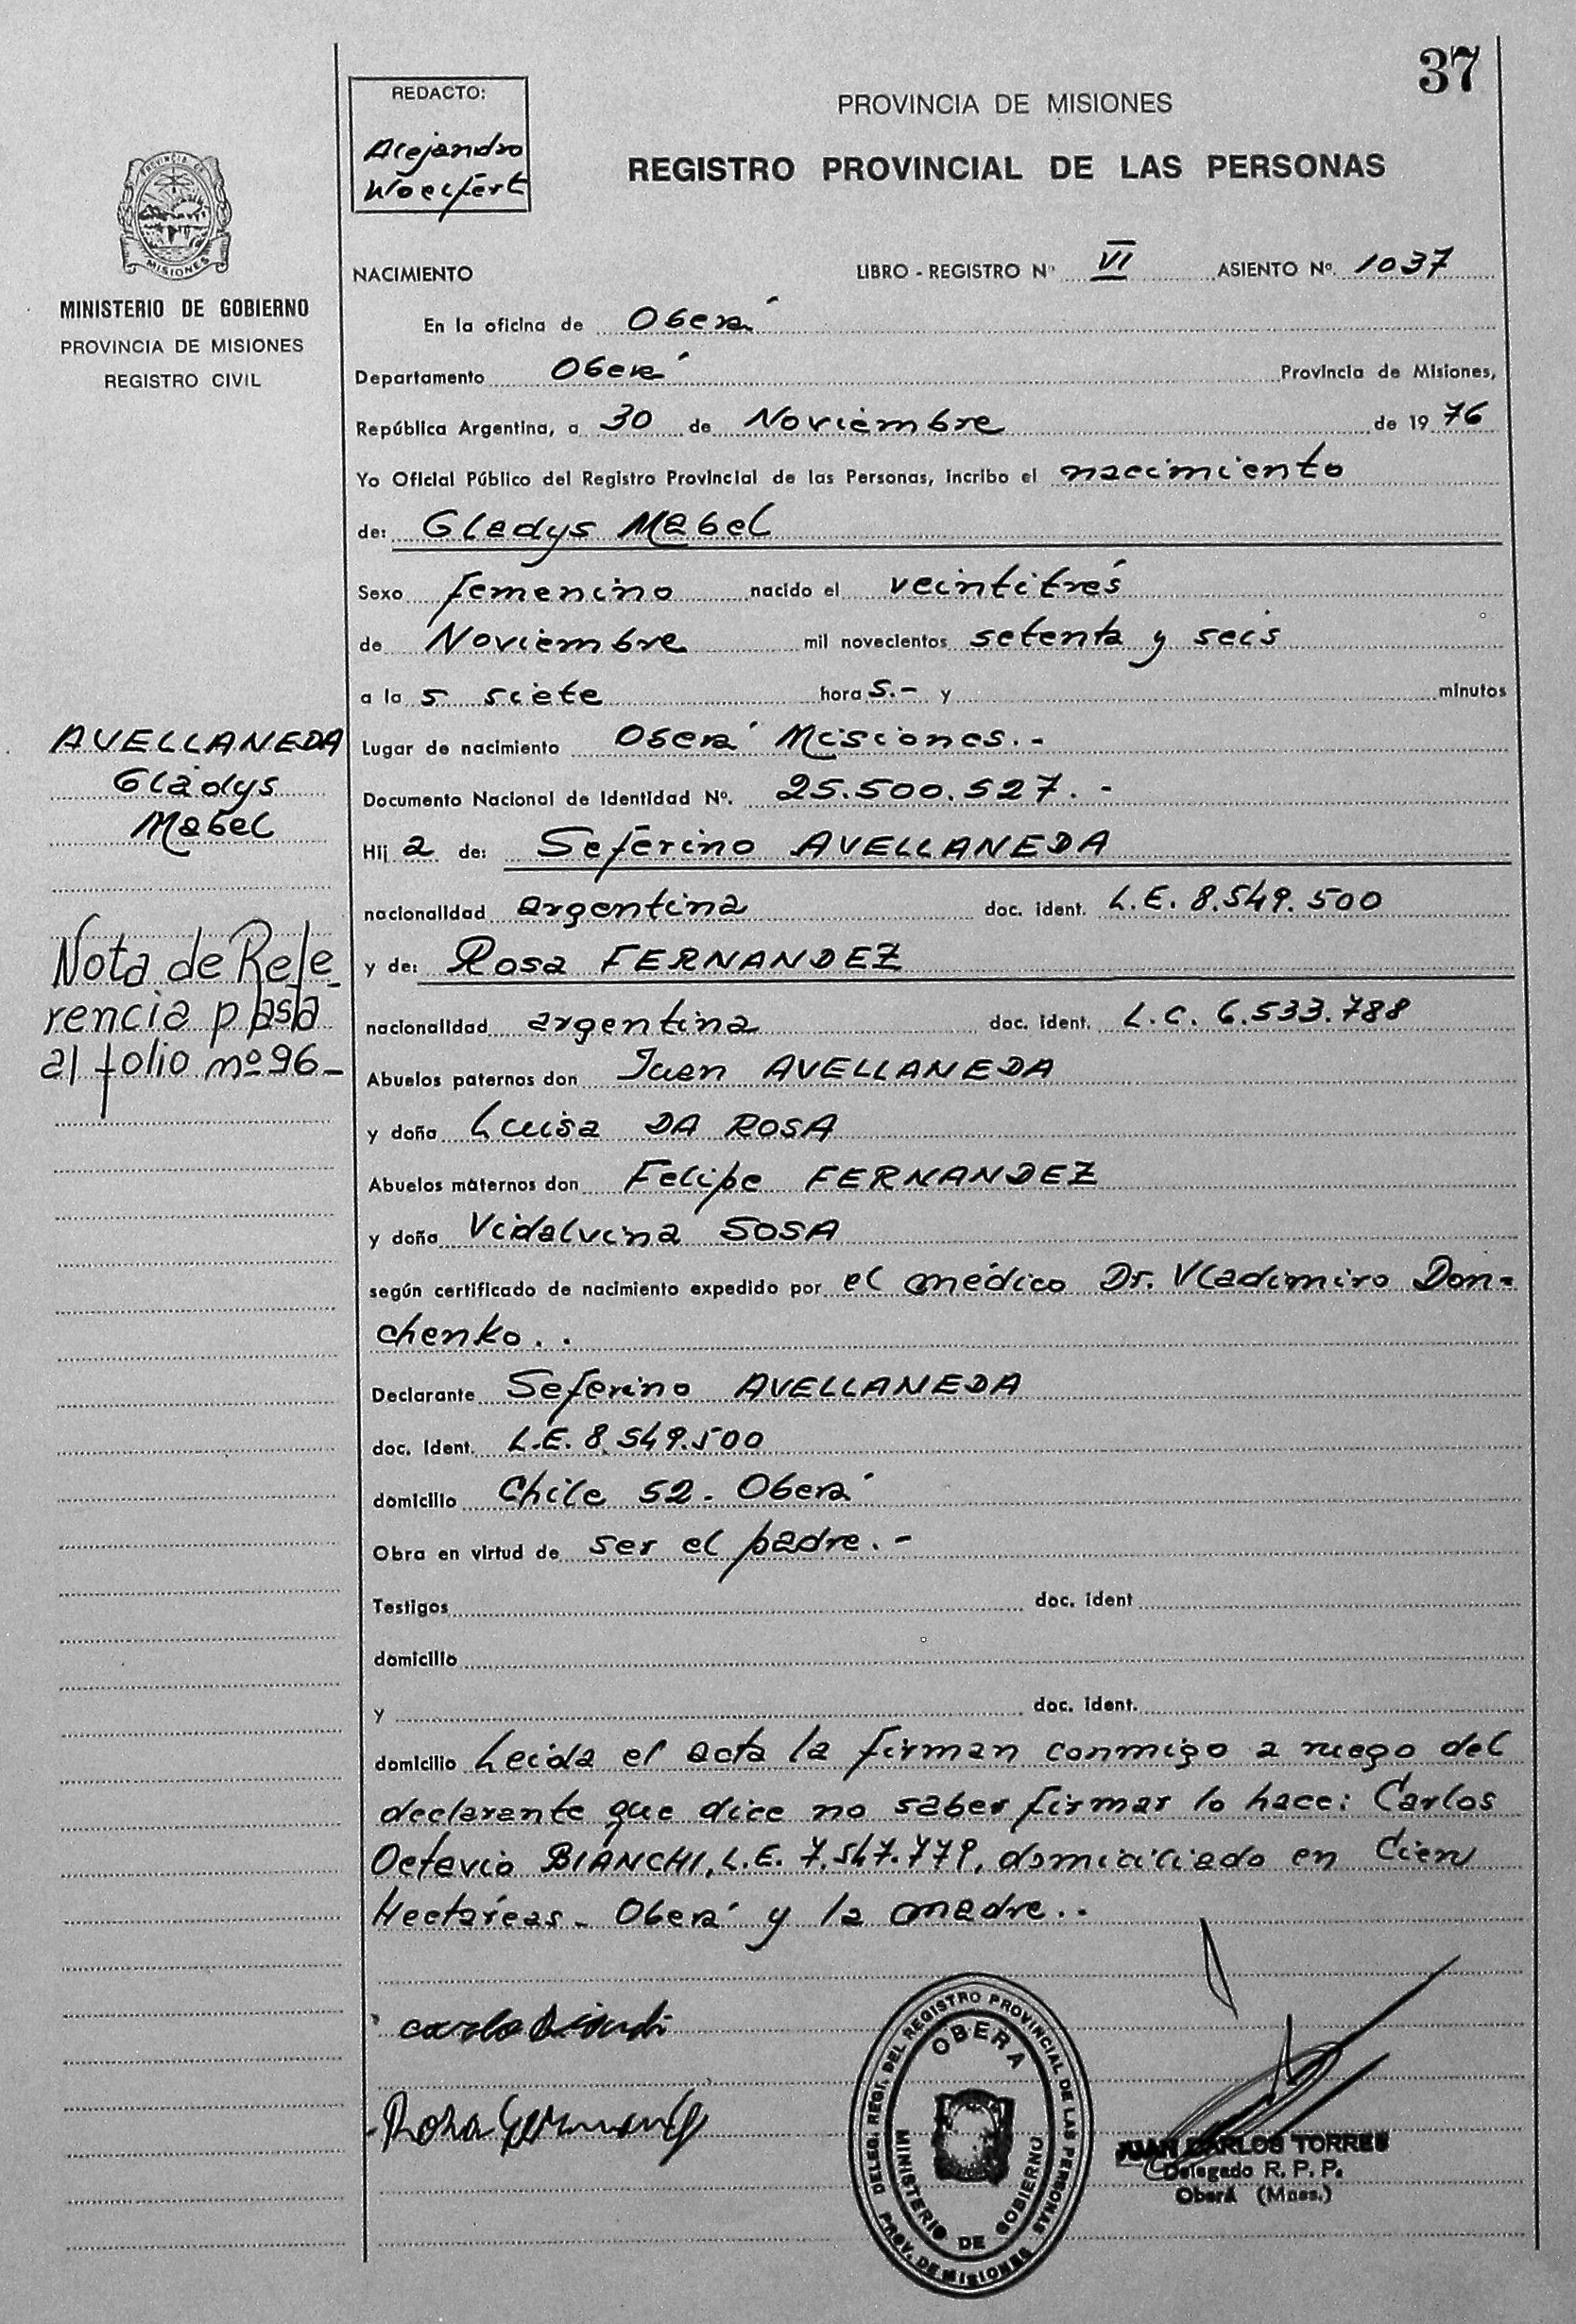 37
REDACTO:
Alejandro
Woelfert
PROVINCIA DE MISIONES
REGISTRO PROVINCIAL DE LAS PERSONAS
PROVINCIA DE
MISIONES
MINISTERIO DE GOBIERNO
PROVINCIA DE MISIONES
REGISTRO CIVIL
NACIMIENTO LIBRO - REGISTRO Nº VI ASIENTO Nº. 1037
En la oficina de Oberá
Departamento Oberá Provincia de Misiones,
República Argentina, a 30 de Noviembre de 19 76
Yo Oficial Público del Registro Provincial de las Personas, incribo el nacimiento
de: Gladys Mabel
Sexo femenino nacido el veintitrés
de Noviembre mil novecientos setenta y seis
a la s siete hora s.- y minutos
Lugar de nacimiento Oberá Misiones.-
Documento Nacional de Identidad Nº. 25.500.527.-
Hij a de: Seferino AVELLANEDA
nacionalidad argentina doc. ident. L.E. 8.549.500
y de: Rosa FERNANDEZ
nacionalidad argentina doc. ident. L.C. 6.533.788
Abuelos paternos don Juan AVELLANEDA
y doña Luisa DA ROSA
Abuelos maternos don Felipe FERNANDEZ
y doña Vidalvina SOSA
según certificado de nacimiento expedido por el médico Dr. Vladimiro Don-
chenko..
Declarante Seferino AVELLANEDA
doc. ident. L.E. 8.549.500
domicilio Chile 52. Oberá
Obra en virtud de ser el padre.-
Testigos doc. ident
domicilio
y doc. ident.
domicilio Leida el acta la firman conmigo a ruego del
declarante que dice no saber firmar lo hace: Carlos
Octavio BIANCHI, L.E. 7.547.779, domiciliado en Cien
Hectáreas- Oberá y la madre..
AVELLANEDA
Gladys
Mabel
Nota de Refe-
rencia pasa
al folio nº 96-
DELEG. REGI. DEL REGISTRO PROVINCIAL DE LAS PERSONAS
OBERA
MINISTERIO DE GOBIERNO
PROV. DE MISIONES
JUAN CARLOS TORRES
Delegado R. P. P.
Oberá (Mnes.)